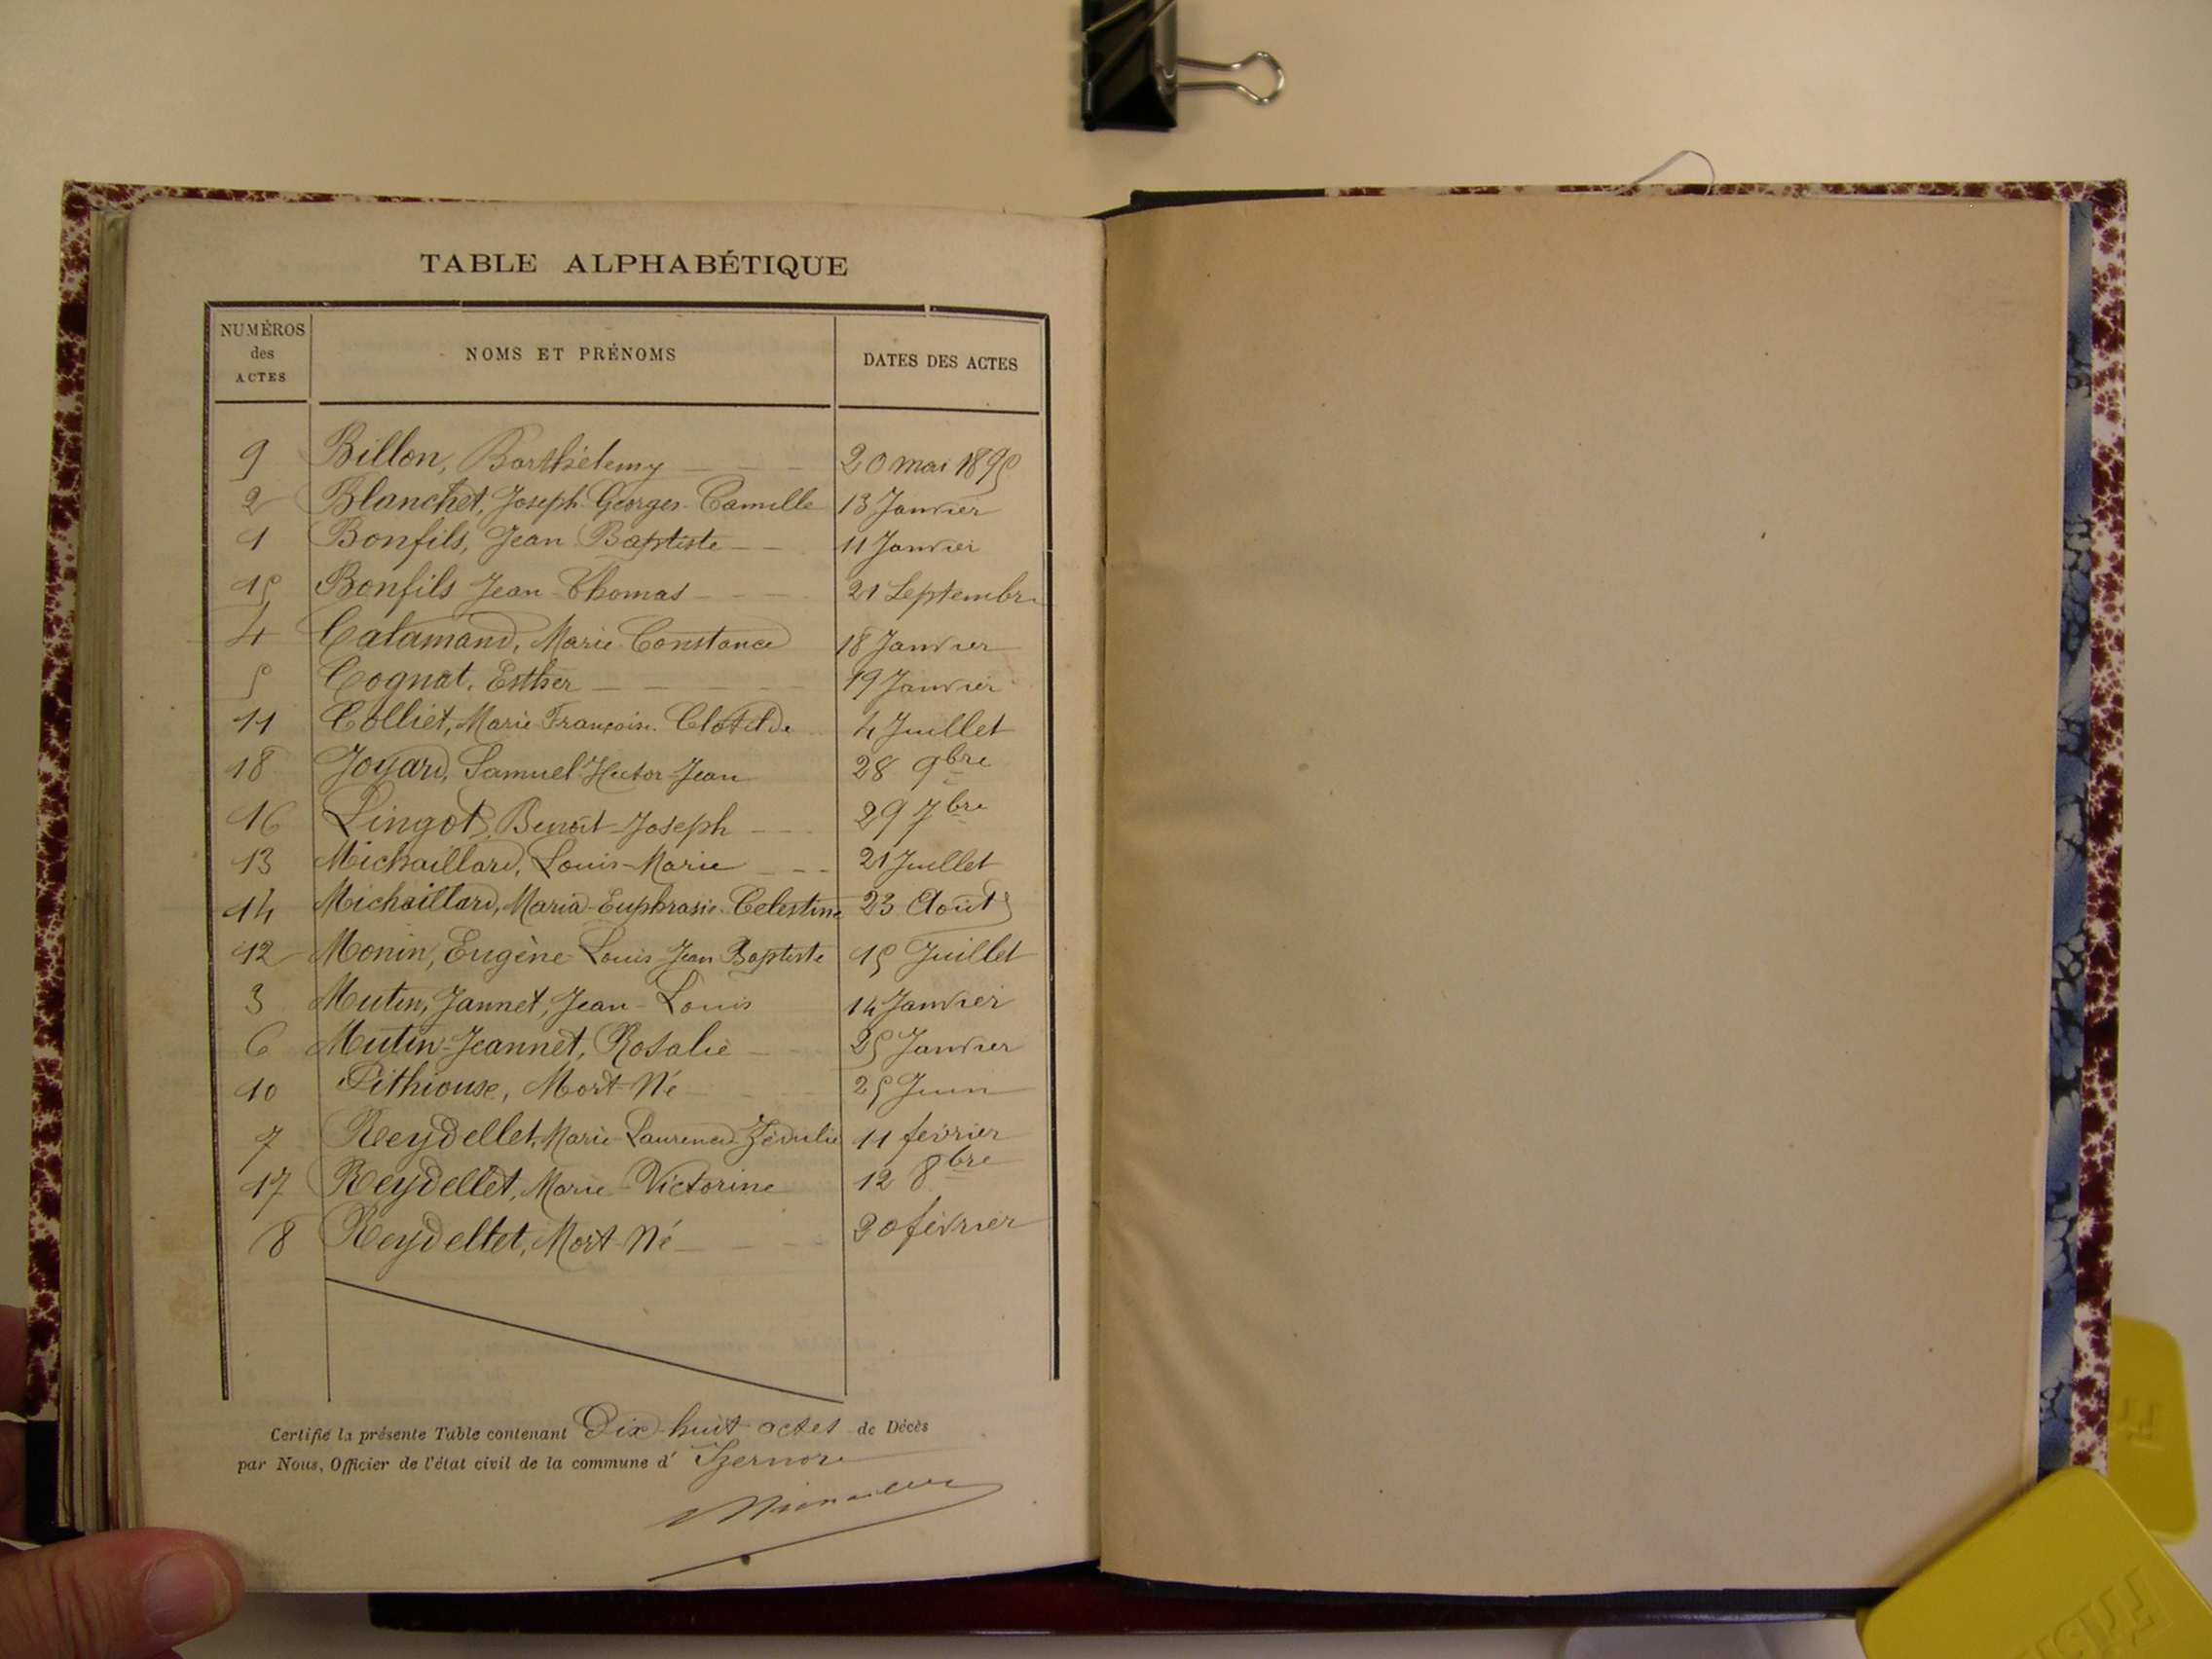 TABLE ALPHABÉTIQUE
NUMÉROS des ACTES NOMS ET PRÉNOMS DATES DES ACTES
9 Billon, Barthélemy 20 mai 1895
2 Blanchet, Joseph Georges Camille 13 Janvier
1 Bonfils, Jean Baptiste 11 Janvier
15 Bonfils Jean Thomas 21 Septembre
4 Catamand, Marie Constance 18 Janvier
5 Cognat, Esther 19 Janvier
11 Colliet, Marie Françoise Clotilde 4 Juillet
18 Joyard, Samuel Hector Jean 28 9bre
16 Lingot, Benoît Joseph 29 7bre
13 Michaillard, Louis-Marie 21 Juillet
14 Michaillard, Maria Euphrasie Celestine 23 Août
12 Monin, Eugène Louis Jean Baptiste 15 Juillet
3 Mutin, Jannet, Jean-Louis 14 Janvier
6 Mutin-Jeannet, Rosalie 25 Janvier
10 Pithiouse, Mort-Né 25 Juin
7 Reydellet, Marie Laurence 11 février
17 Reydellet, Marie Victorine 12 8bre
8 Reydellet, Mort-Né 20 février
Certifié la présente Table contenant Dix huit actes de Décès
par Nous, Officier de l'état civil de la commune d' Izernore